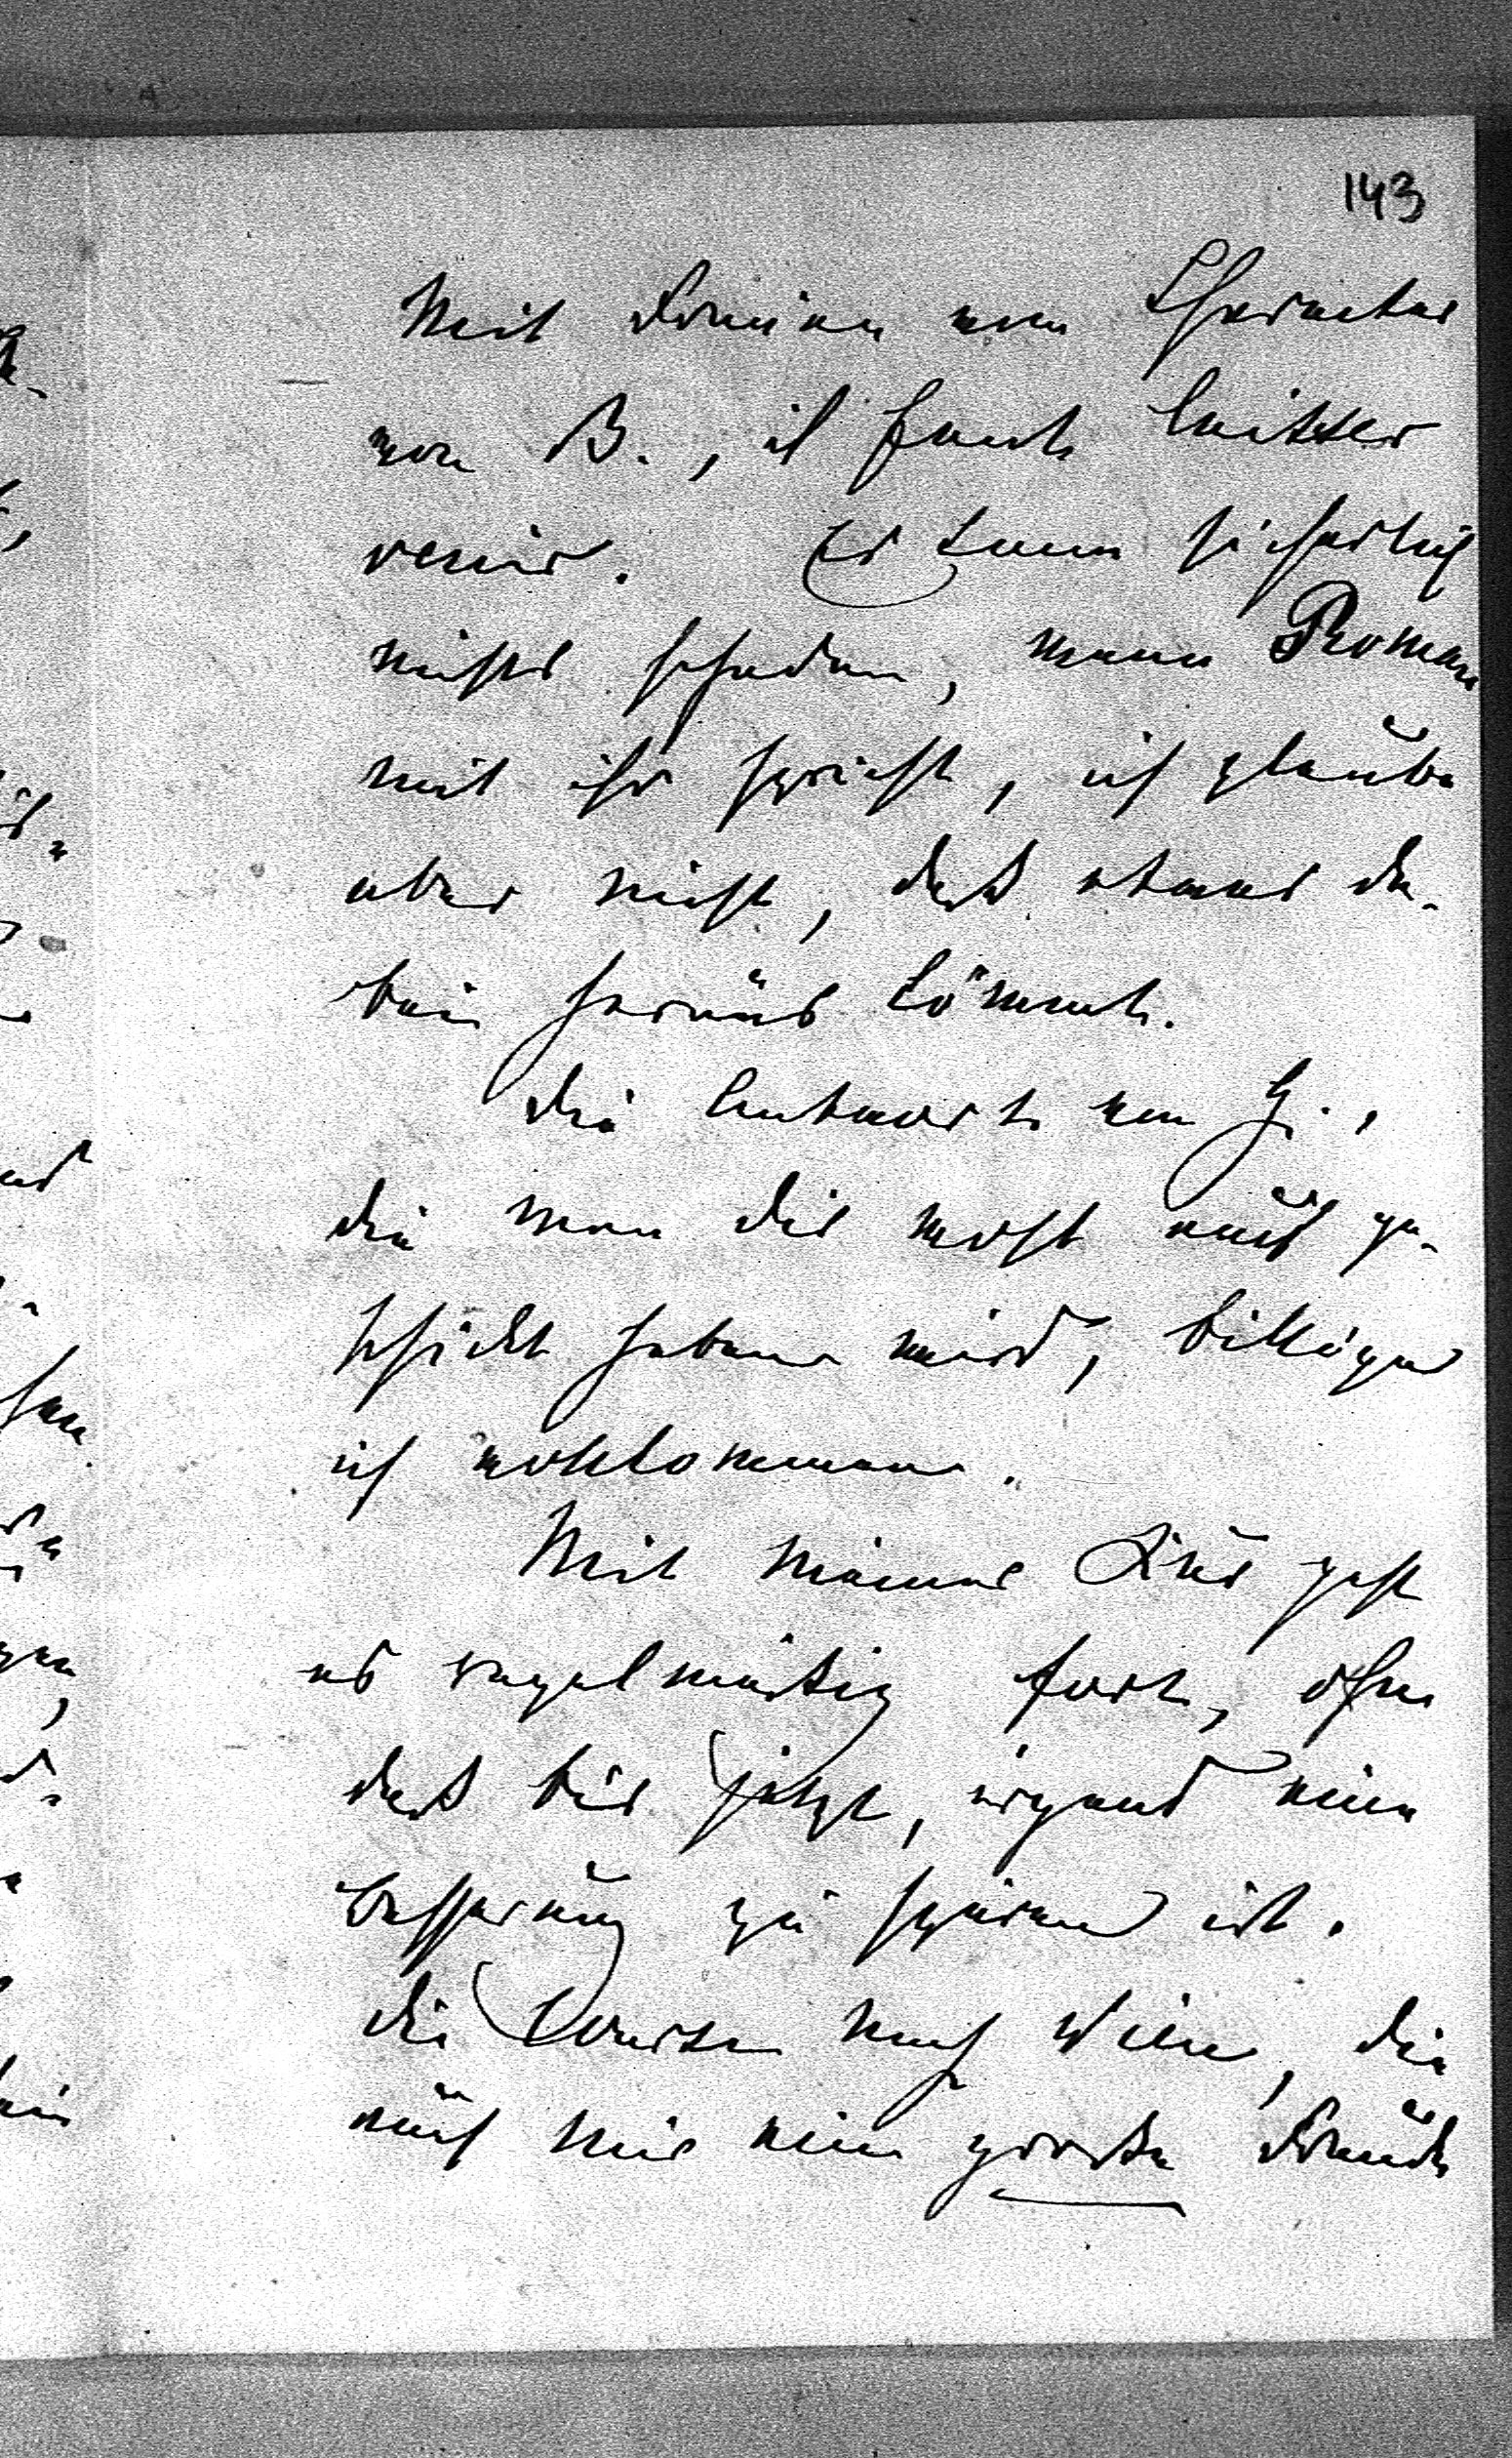 143
Mit Frauen vom Character
von B., il faut laisser
venir. Es kann sicherlich
nichts schaden, wenn Roman
mit ihr spricht, ich glaube
aber nicht, daß etwas da-
bei heraus kömmt.
Die Antwort von G.,
die man Dir wohl auch ge-
schickt haben wird, billige
ich vollkommen.
Mit meiner Kur geht
es regelmäßig fort, ohne
daß bis jetzt, irgend eine
Besserung zu spüren ist.
Die Course nach Wien, die
auf mir eine große